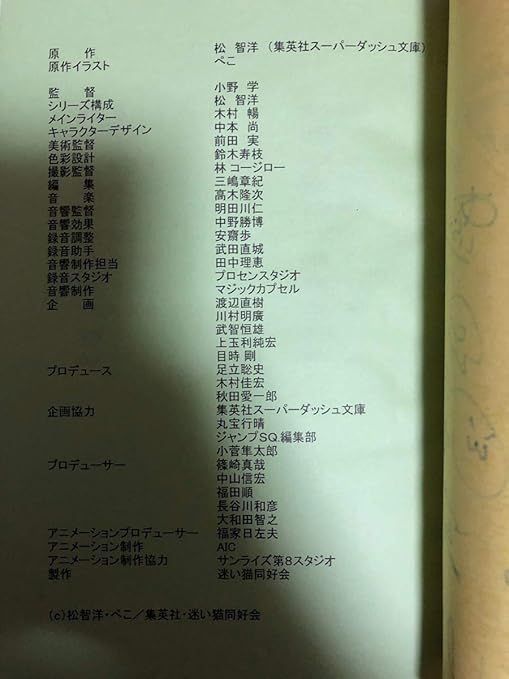 原作 松 智洋 (集英社スーパーダッシュ文庫)
原作イラスト ぺこ
監督 小野 学
シリーズ構成 松 智洋
メインライター 木村 暢
キャラクターデザイン 中本 尚
美術監督 前田 実
色彩設計 鈴木寿枝
撮影監督 林 コージロー
編集 三嶋章紀
音楽 高木隆次
音響監督 明田川仁
音響効果 中野勝博
録音調整 安齋歩
録音助手 武田直城
音響制作担当 田中理恵
録音スタジオ プロセンスタジオ
音響制作 マジックカプセル
企画 渡辺直樹
川村明廣
武智恒雄
上玉利純宏
目時 剛
プロデュース 足立聡史
木村佳宏
秋田愛一郎
企画協力 集英社スーパーダッシュ文庫
丸宝行晴
ジャンプSQ.編集部
小菅隼太郎
プロデューサー 篠崎真哉
中山信宏
福田順
長谷川和彦
大和田智之
アニメーションプロデューサー 福家日左夫
アニメーション制作 AIC
アニメーション制作協力 サンライズ第8スタジオ
製作 迷い猫同好会
(c)松智洋・ぺこ/集英社・迷い猫同好会